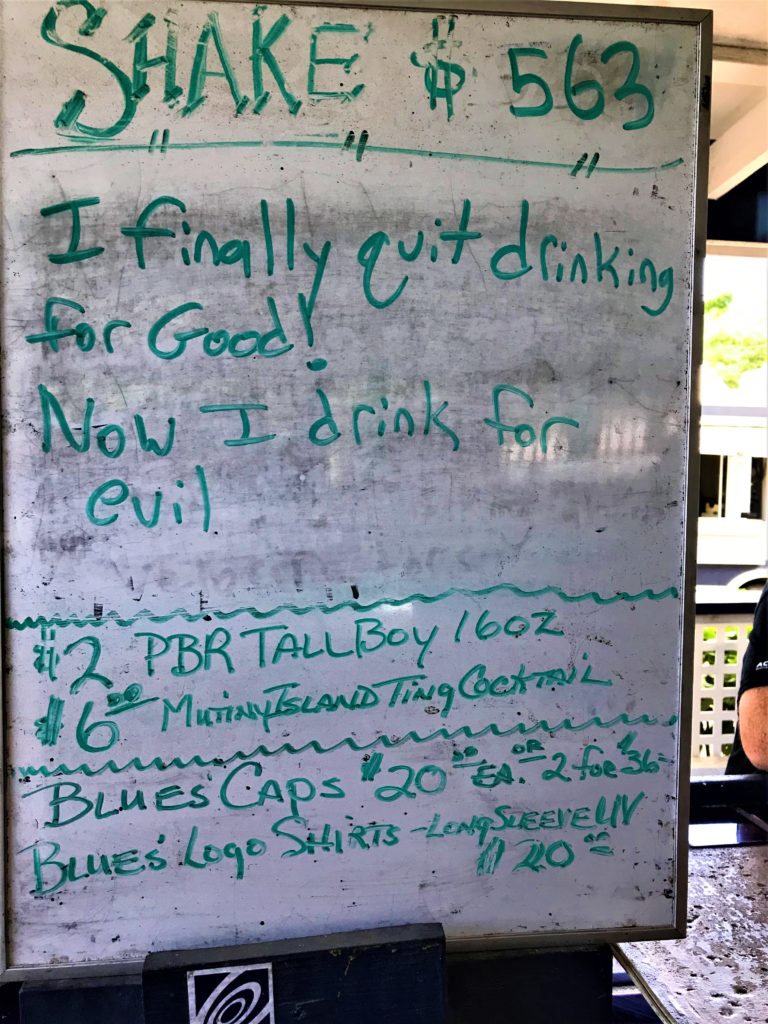 SHAKE $ 563
I finally quit drinking
for Good!
Now I drink for
evil
$2 PBR TALL BOY 16OZ
$6.00 MUTINY ISLAND TING COCKTAIL
BLUES' CAPS $20.00 EA. OR 2 for $36
BLUES' LOGO SHIRTS - LONG SLEEVE UV
$20.00